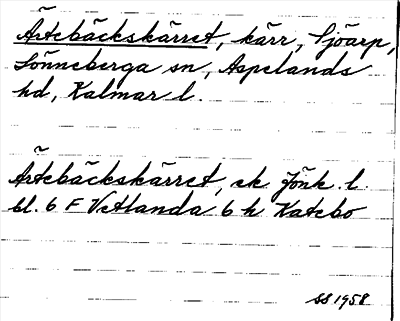 Ärtebäckskärret, kärr, Sjöarp,
Lönneberga sn, Aspelands
hd, Kalmar l.
Ärtebäckskärret, ek Jönk l.
bl. 6 F Vetlanda 6 h Katebo
SS 1958